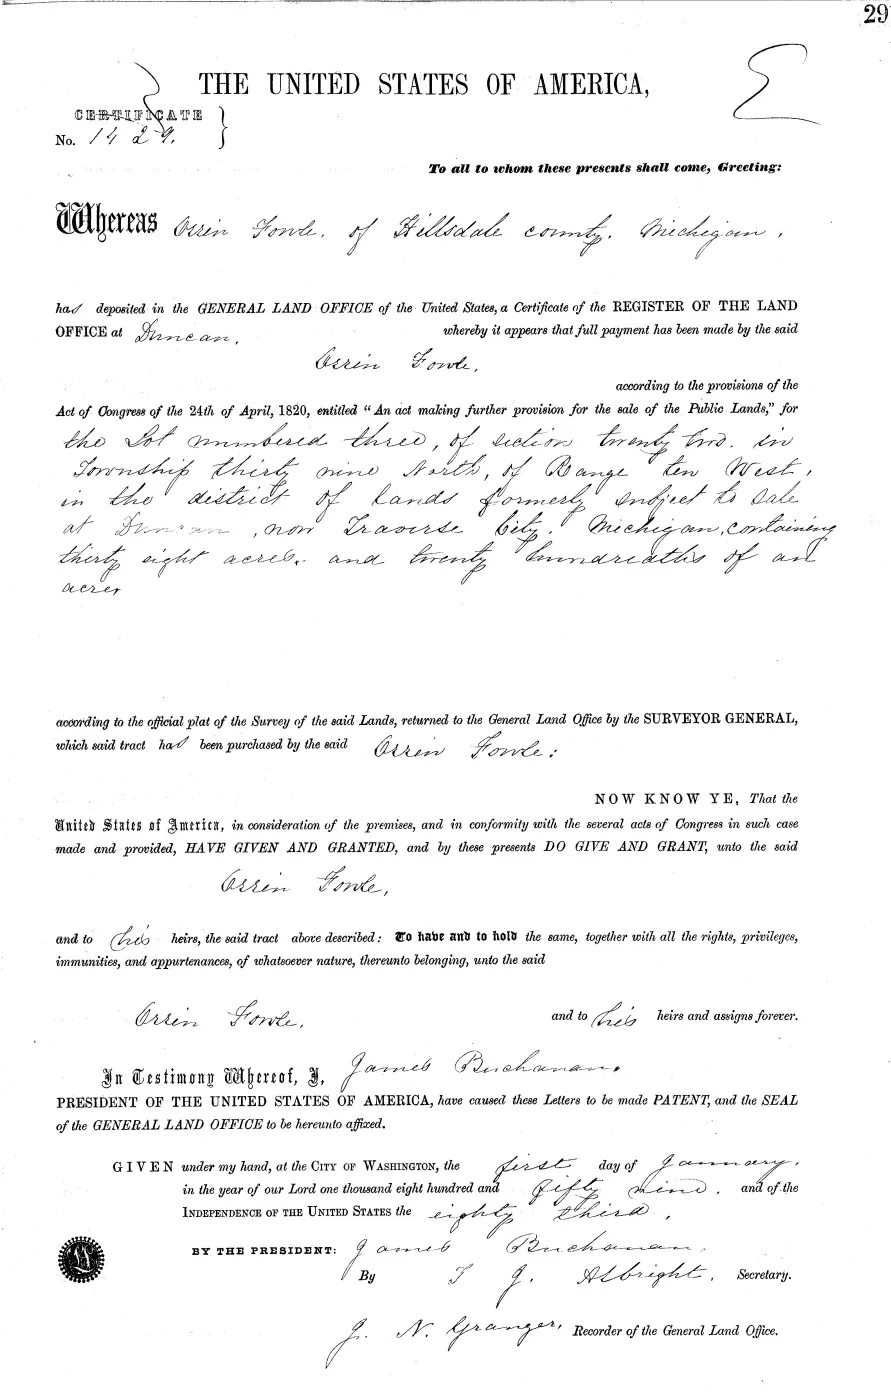 29
THE UNITED STATES OF AMERICA,
CERTIFICATE
No. 1429.
To all to whom these presents shall come, Greeting:
Whereas Orrin Fowle, of Hillsdale county, Michigan,
has deposited in the GENERAL LAND OFFICE of the United States, a Certificate of the REGISTER OF THE LAND
OFFICE at Duncan, whereby it appears that full payment has been made by the said
Orrin Fowle,
according to the provisions of the
Act of Congress of the 24th of April, 1820, entitled "An act making further provision for the sale of the Public Lands," for
the Lot numbered three, of section twenty two, in
Township thirty nine North, of Range ten West,
in the district of lands formerly subject to sale
at Duncan, now Traverse City, Michigan, containing
thirty eight acres, and twenty hundredths of an
acre,
according to the official plat of the Survey of the said Lands, returned to the General Land Office by the SURVEYOR GENERAL,
which said tract has been purchased by the said Orrin Fowle:
NOW KNOW YE, That the
United States of America, in consideration of the premises, and in conformity with the several acts of Congress in such case
made and provided, HAVE GIVEN AND GRANTED, and by these presents DO GIVE AND GRANT, unto the said
Orrin Fowle,
and to his heirs, the said tract above described: To have and to hold the same, together with all the rights, privileges,
immunities, and appurtenances, of whatsoever nature, thereunto belonging, unto the said
Orrin Fowle, and to his heirs and assigns forever.
In Testimony Whereof, I, James Buchanan,
PRESIDENT OF THE UNITED STATES OF AMERICA, have caused these Letters to be made PATENT, and the SEAL
of the GENERAL LAND OFFICE to be hereunto affixed.
GIVEN under my hand, at the CITY OF WASHINGTON, the first day of January,
in the year of our Lord one thousand eight hundred and fifty nine, and of the
INDEPENDENCE OF THE UNITED STATES the eighty third,
BY THE PRESIDENT: James Buchanan,
By T J. Albright, Secretary.
J. N. Granger, Recorder of the General Land Office.